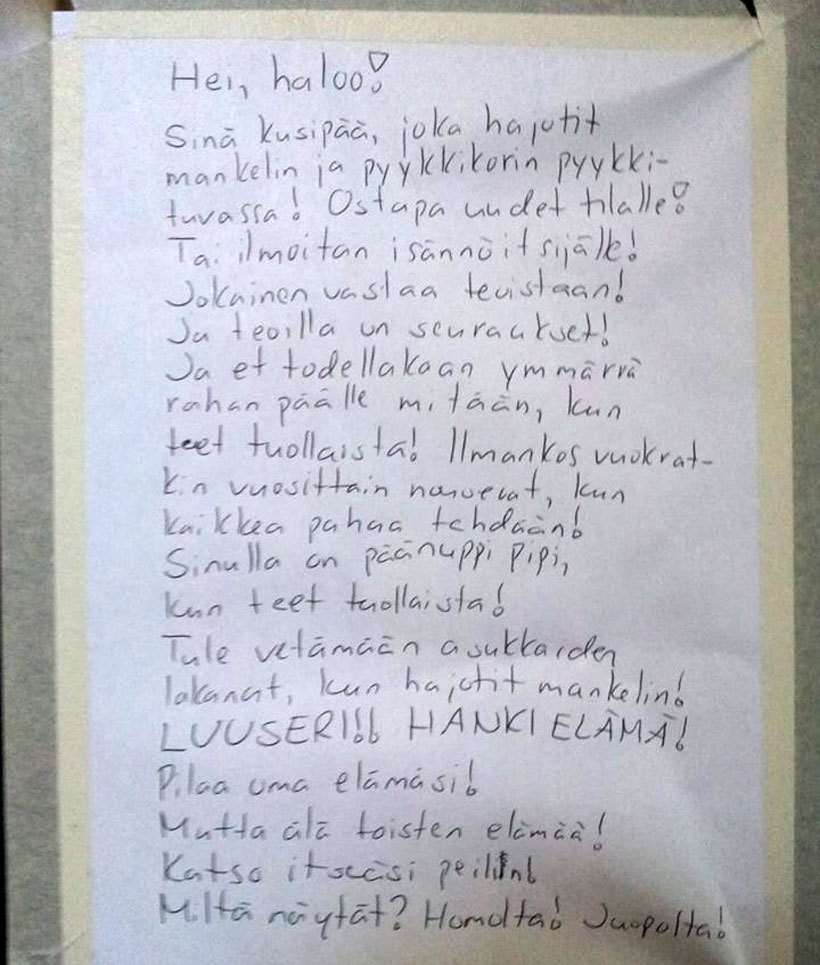 Hei, haloo!
Sinä kusipää, joka hajotit
mankelin ja pyykkikorin pyykki-
tuvassa! Ostapa uudet tilalle!
Tai ilmoitan isännöitsijälle!
Jokainen vastaa teoistaan!
Ja teoilla on seuraukset!
Ja et todellakaan ymmärrä
rahan päälle mitään, kun
teet tuollaista! Ilmankos vuokrat-
kin vuosittain nousevat, kun
kaikkea pahaa tehdään!
Sinulla on päänuppi pipi,
kun teet tuollaista!
Tule vetämään asukkaiden
lakanat, kun hajotit mankelin!
LUUSERI!!! HANKI ELÄMÄ!
Pilaa oma elämäsi!
Mutta älä toisten elämää!
Katso itseäsi peiliin!
Miltä näytät? Homolta! Juopolta!